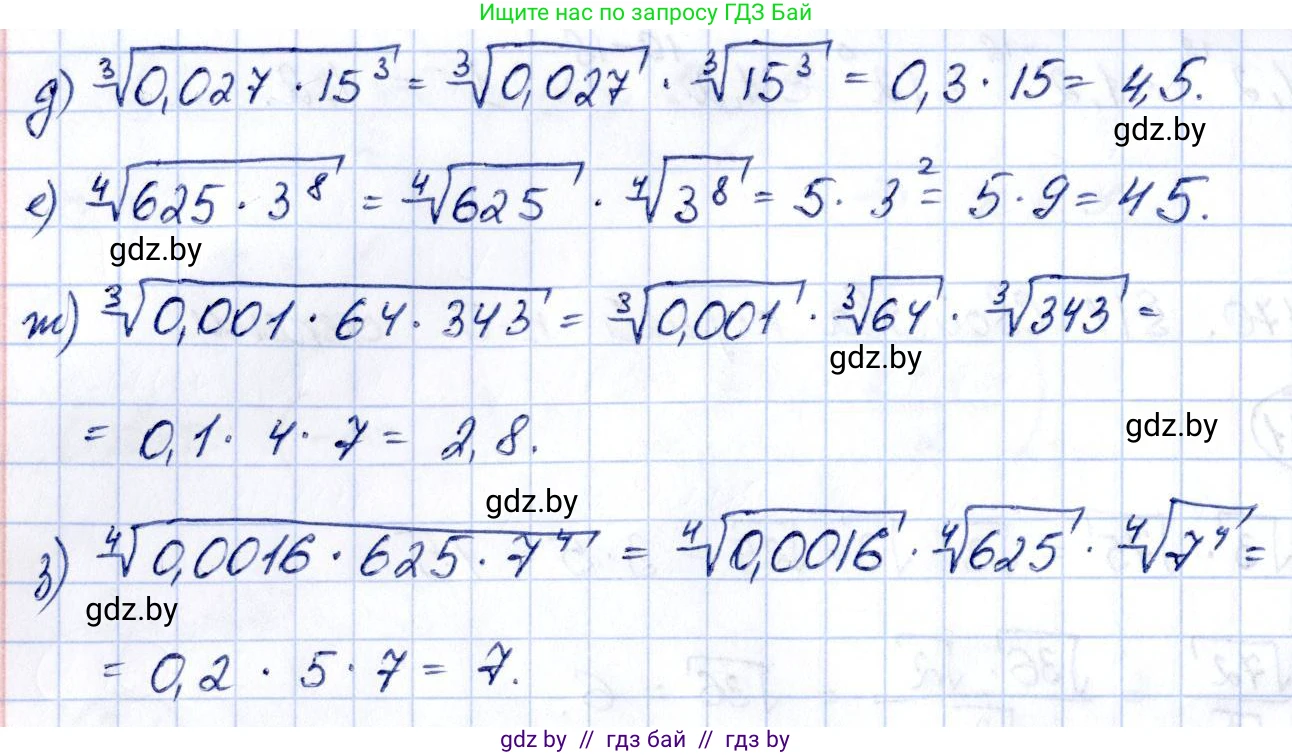 Ищите нас по запросу ГДЗ Бай
д) ∛(0,027 · 15³) = ∛0,027 · ∛15³ = 0,3 · 15 = 4,5.
gdz.by
е) ∜(625 · 3⁸) = ∜625 · ∜3⁸ = 5 · 3² = 5 · 9 = 45.
gdz.by
ж) ∛(0,001 · 64 · 343) = ∛0,001 · ∛64 · ∛343 =
gdz.by
= 0,1 · 4 · 7 = 2,8.
gdz.by
gdz.by
з) ∜(0,0016 · 625 · 7⁴) = ∜0,0016 · ∜625 · ∜7⁴ =
gdz.by
= 0,2 · 5 · 7 = 7.
gdz by // гдз бай // гдз by